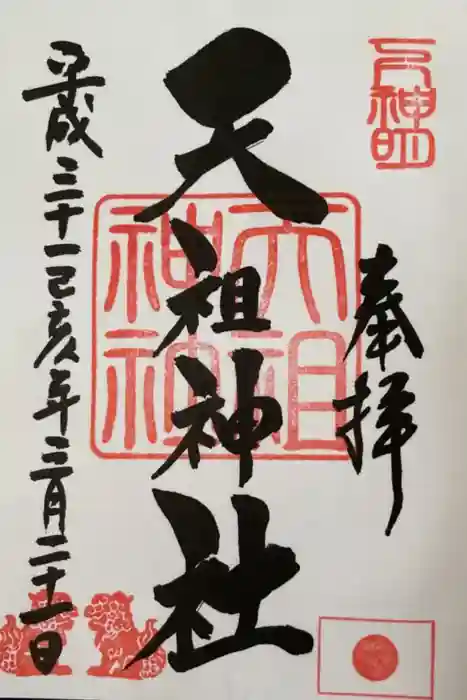 奉拝
天祖神社
平成三十一己亥年三月二十一日
天祖神社